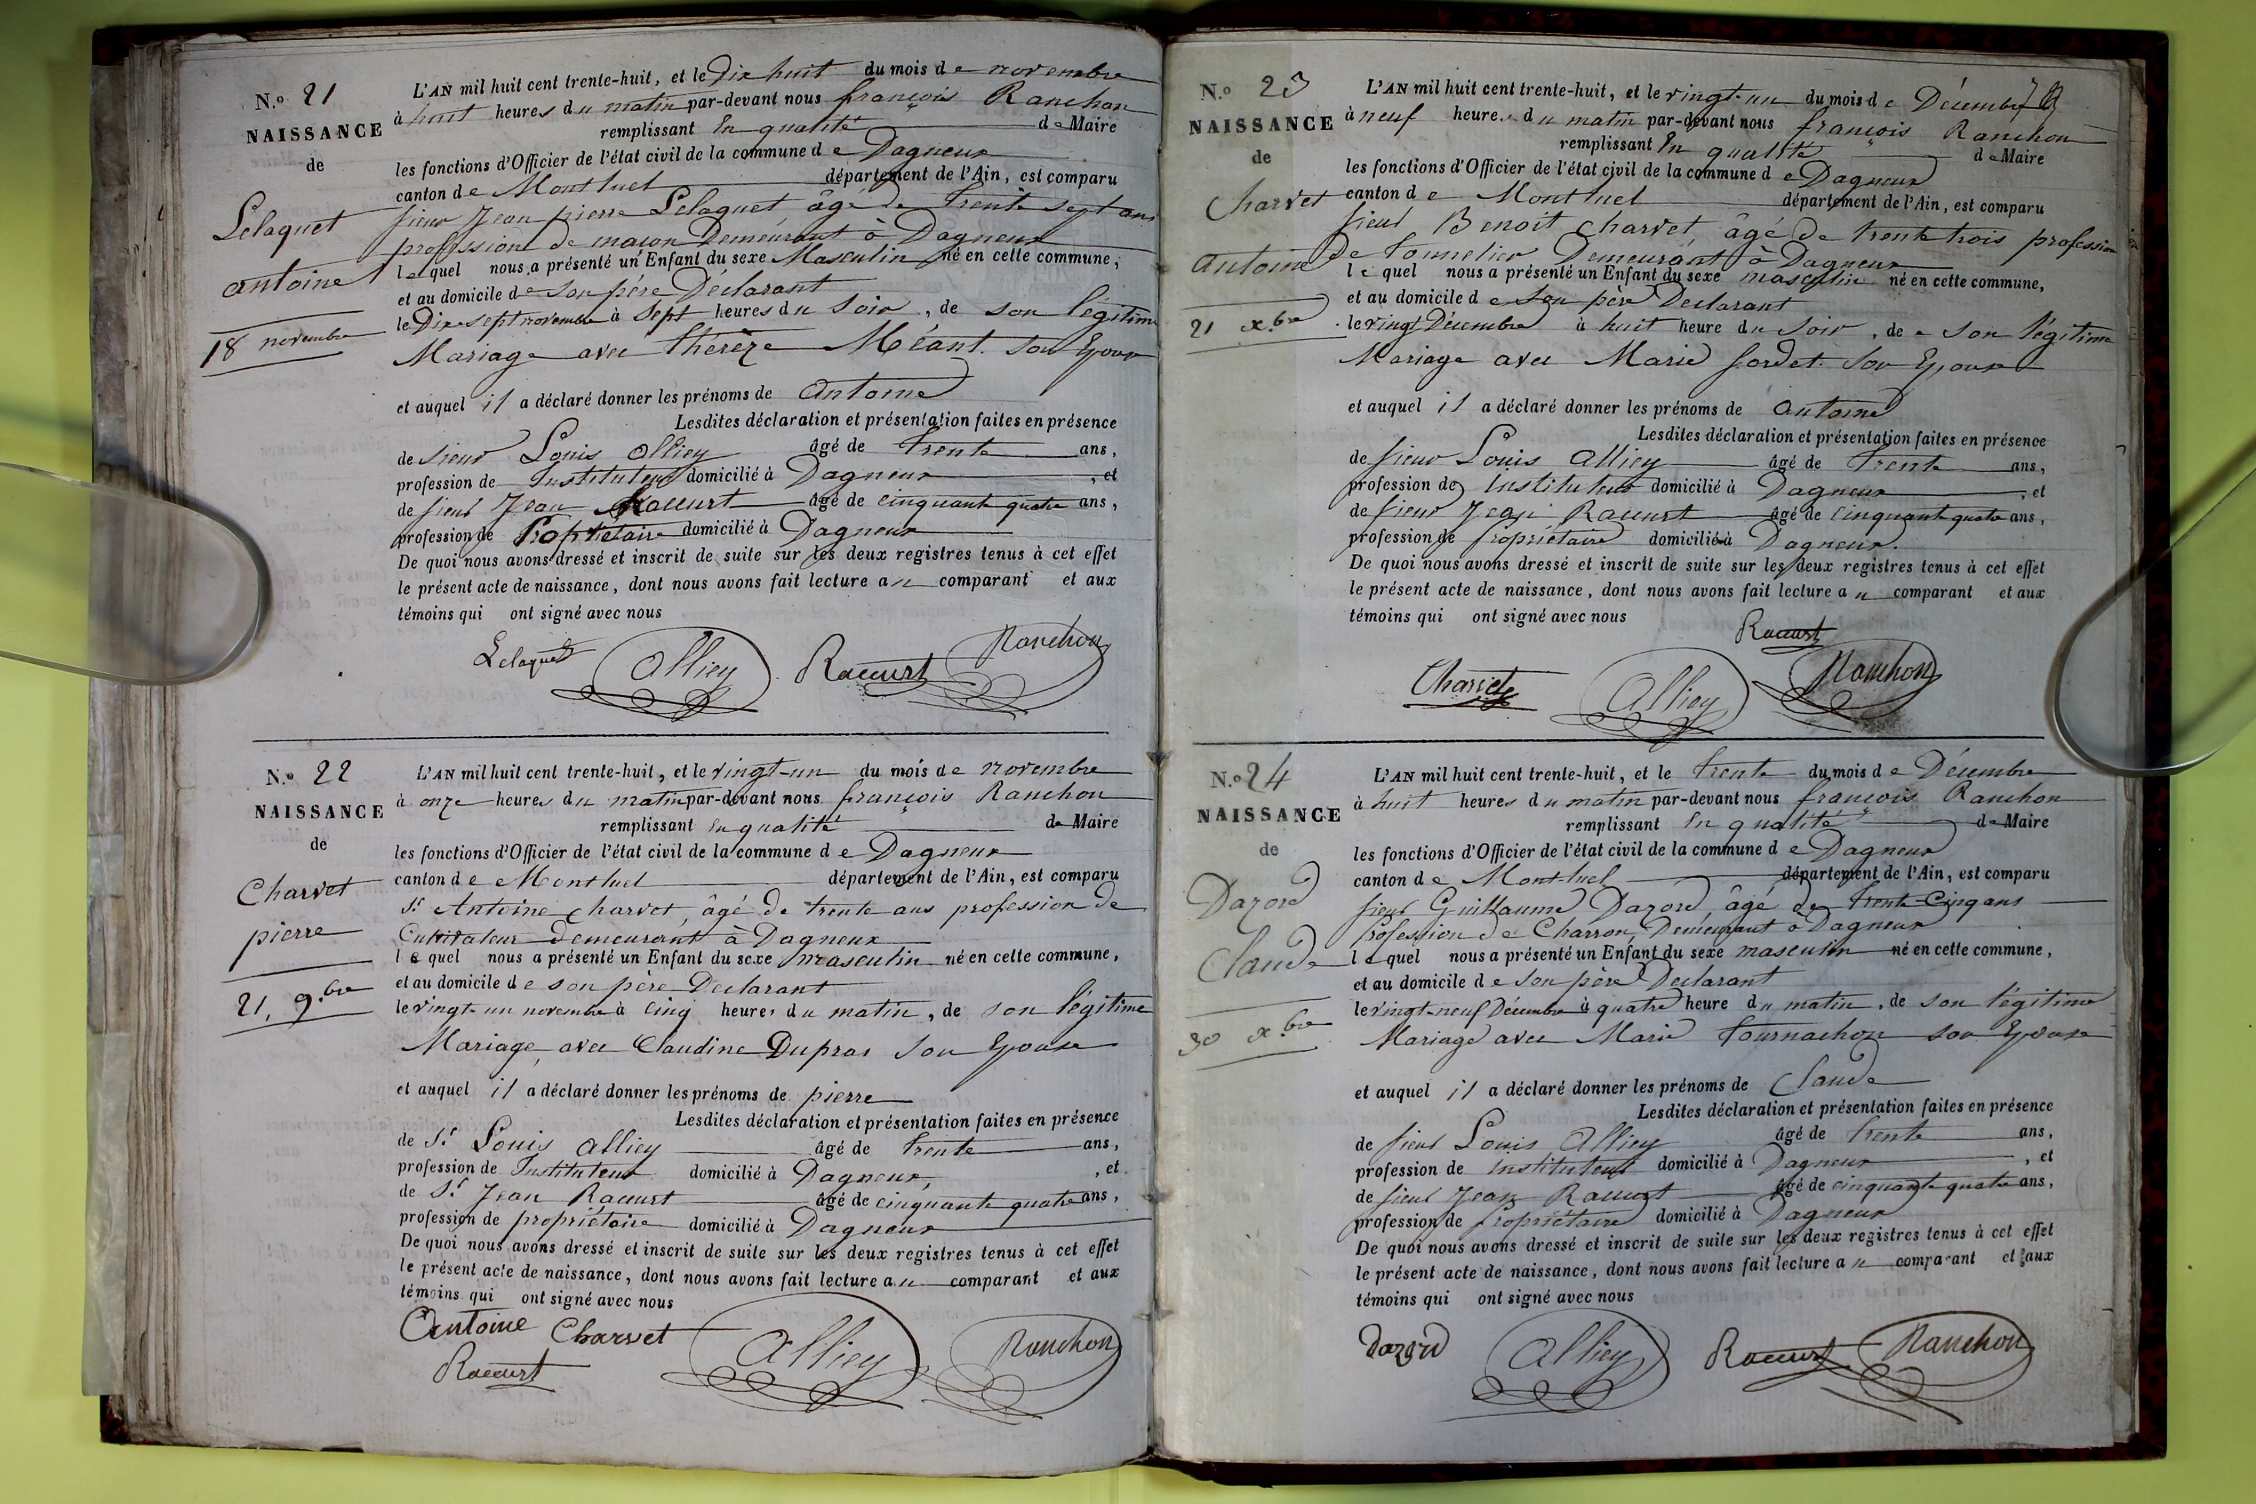 N.o 21
NAISSANCE
de
Lelaquet
antoine
18 novembre
L'AN mil huit cent trente-huit, et le Dix huit du mois de novembre
à huit heures du matin par-devant nous françois Ranchon
remplissant En qualité de Maire
les fonctions d'Officier de l'état civil de la commune de Dagneux
canton de Montluel département de l'Ain, est comparu
sieur Jean pierre Lelaquet, âgé de trente sept ans
profession de maçon Demeurant à Dagneux
lequel nous a présenté un Enfant du sexe Masculin né en cette commune,
et au domicile de son père Déclarant
le Dix-sept novembre à sept heures du soir, de son légitime
Mariage avec thérèze Méant son Epouse
et auquel il a déclaré donner les prénoms de antoine
Lesdites déclaration et présentation faites en présence
de sieur Louis alliey âgé de trente ans,
profession de Instituteur domicilié à Dagneux, et
de sieur Jean Racurt âgé de cinquante quatre ans,
profession de Propriétaire domicilié à Dagneux
De quoi nous avons dressé et inscrit de suite sur les deux registres tenus à cet effet
le présent acte de naissance, dont nous avons fait lecture au comparant et aux
témoins qui ont signé avec nous
Lelaquet alliey Racurt Ranchon
N.o 22
NAISSANCE
de
Charvet
pierre
21, 9.bre
L'AN mil huit cent trente-huit, et le vingt-un du mois de novembre
à onze heures du matin par-devant nous françois Ranchon
remplissant En qualité de Maire
les fonctions d'Officier de l'état civil de la commune de Dagneux
canton de Montluel département de l'Ain, est comparu
Sr Antoine Charvet, âgé de trente ans profession de
Cultivateur demeurant à Dagneux
lequel nous a présenté un Enfant du sexe masculin né en cette commune,
et au domicile de son père Declarant
le vingt-un novembre à cinq heures du matin, de son légitime
Mariage avec Claudine Dupras son Epouse
et auquel il a déclaré donner les prénoms de pierre
Lesdites déclaration et présentation faites en présence
de Sr Louis alliey âgé de trente ans,
profession de Instituteur domicilié à Dagneux, et
de Sr Jean Racurt âgé de cinquante quatre ans,
profession de propriétaire domicilié à Dagneux
De quoi nous avons dressé et inscrit de suite sur les deux registres tenus à cet effet
le présent acte de naissance, dont nous avons fait lecture au comparant et aux
témoins qui ont signé avec nous
Antoine Charvet alliey Ranchon
Racurt
N.o 23
NAISSANCE
de
Charvet
antoine
21 x.bre
L'AN mil huit cent trente-huit, et le vingt-un du mois de Décembre
à neuf heure du matin par-devant nous françois Ranchon
remplissant En qualité de Maire
les fonctions d'Officier de l'état civil de la commune de Dagneux
canton de Montluel département de l'Ain, est comparu
sieur Benoit Charvet, âgé de trente trois profession
de tonnelier Demeurant à Dagneux
lequel nous a présenté un Enfant du sexe masculin né en cette commune,
et au domicile de son père Declarant
le vingt Décembre à huit heure du soir, de son légitime
Mariage avec Marie fordet son Epouse
et auquel il a déclaré donner les prénoms de antoine
Lesdites déclaration et présentation faites en présence
de sieur Louis alliey âgé de trente ans,
profession de instituteur domicilié à Dagneux, et
de sieur Jean Racurt âgé de cinquante quatre ans,
profession de propriétaire domicilié à Dagneux.
De quoi nous avons dressé et inscrit de suite sur les deux registres tenus à cet effet
le présent acte de naissance, dont nous avons fait lecture au comparant et aux
témoins qui ont signé avec nous
Racurt
Charvet alliey Ranchon
N.o 24
NAISSANCE
de
Dazord
Claude
30 x.bre
L'AN mil huit cent trente-huit, et le trente du mois de Décembre
à huit heures du matin par-devant nous françois Ranchon
remplissant En qualité de Maire
les fonctions d'Officier de l'état civil de la commune de Dagneux
canton de Mont-luel département de l'Ain, est comparu
sieur Guillaume Dazord, âgé de trente-cinq ans
profession de Charron, Demeurant à Dagneux
lequel nous a présenté un Enfant du sexe masculin né en cette commune,
et au domicile de son père Declarant
le vingt-neuf Décembre à quatre heure du matin, de son légitime
Mariage avec Marie tournachon son Epouse
et auquel il a déclaré donner les prénoms de Claude
Lesdites déclaration et présentation faites en présence
de sieur Louis alliey âgé de trente ans,
profession de instituteur domicilié à Dagneux, et
de sieur Jean Racurt âgé de cinquante quatre ans,
profession de Propriétaire domicilié à Dagneux
De quoi nous avons dressé et inscrit de suite sur les deux registres tenus à cet effet
le présent acte de naissance, dont nous avons fait lecture au comparant et aux
témoins qui ont signé avec nous
Dazord alliey Racurt Ranchon